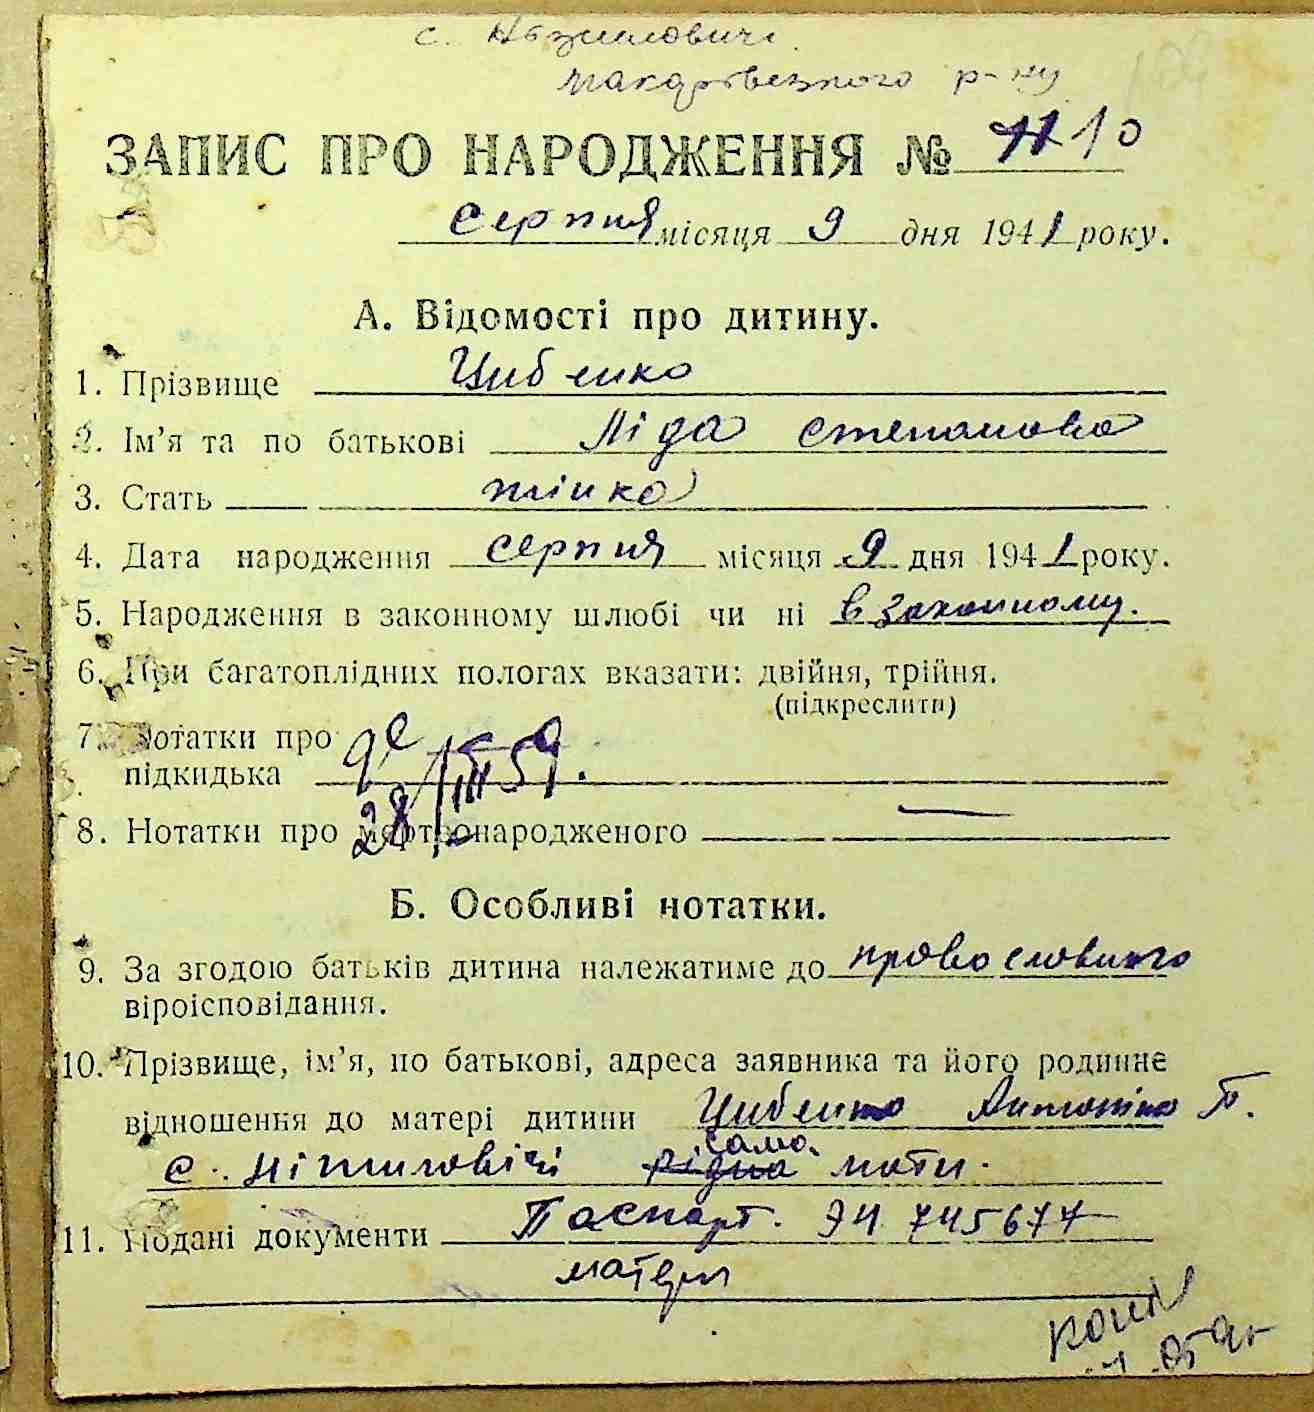 с. Ніжиловичі
Макарівського р-ну
ЗАПИС ПРО НАРОДЖЕННЯ № 11 10
серпня місяця 9 дня 1941 року.
А. Відомості про дитину.
1. Прізвище Цибенко
2. Ім’я та по батькові Ліда Степанова
3. Стать жінка
4. Дата народження серпня місяця 9 дня 1941 року.
5. Народження в законному шлюбі чи ні в законному.
6. При багатоплідних пологах вказати: двійня, трійня.
(підкреслити)
7. Нотатки про
підкидька
28/III 59.
8. Нотатки про мертвонародженого —
Б. Особливі нотатки.
9. За згодою батьків дитина належатиме до провославного
віроісповідання.
10. Прізвище, ім’я, по батькові, адреса заявника та його родинне
відношення до матері дитини Цибенко Антоніна Т.
с. Ніжиловічі рідна само. мати.
11. Подані документи Паспорт. ЭЧ 745677
матери